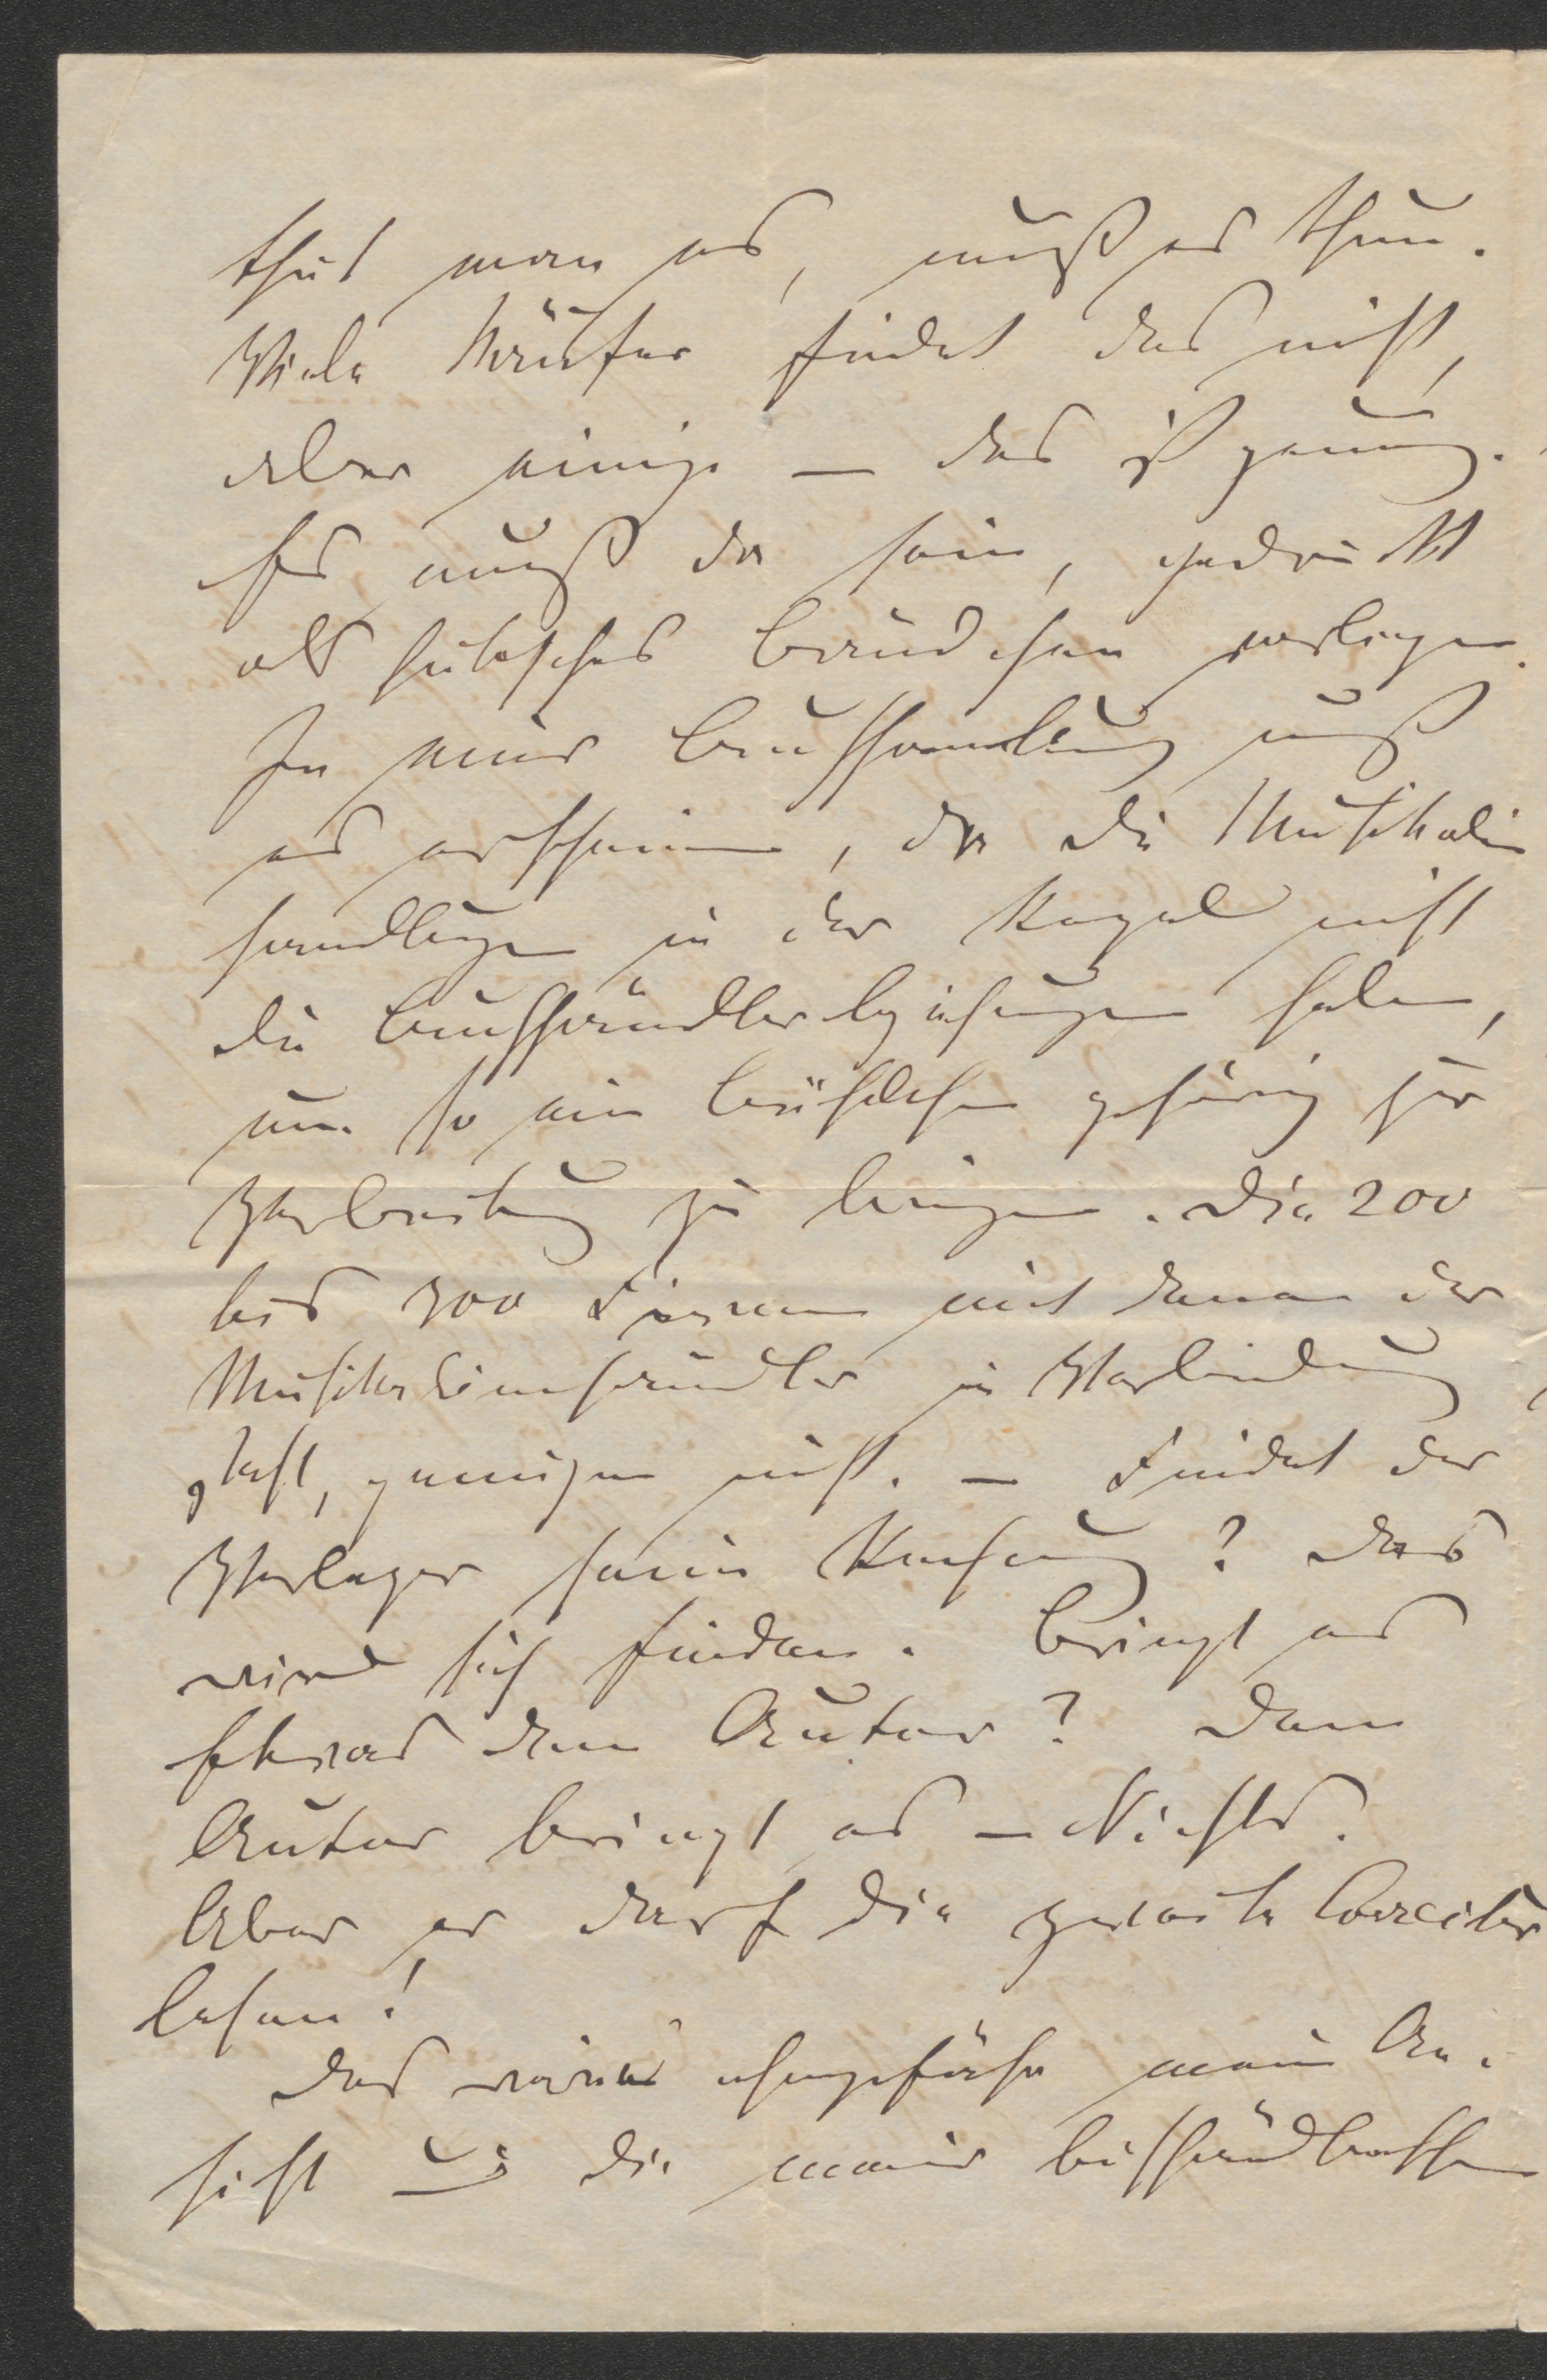 thut man es, muß es thun.
Viele Käufer findet das nicht,
aber einige — das ist genung.
Es muß da sein, gedruckt
als hübsches Bändchen vorliegen.
In einer Buchhandlung muß
es erscheinen, da die Musikalien
handlungen in der Regel nicht
die Buchhändlerbeziehungen haben,
um so ein Büchelchen gehörig zur
Verbreitung zu bringen. Die 200
bis 300 Firmen mit denen der
Musikalienhändler in Verbindung
steht, genügen nicht. — Findet der
Verleger seine Rechnung? Das
wird sich finden. Bringt es
Etwas dem Autor? Dem
Autor bringt es — Nichts.
Aber er darf die zweite Correctur
lesen!
Das wäre ohngefähr meine An-
sicht u. die meiner buchhändlerischen